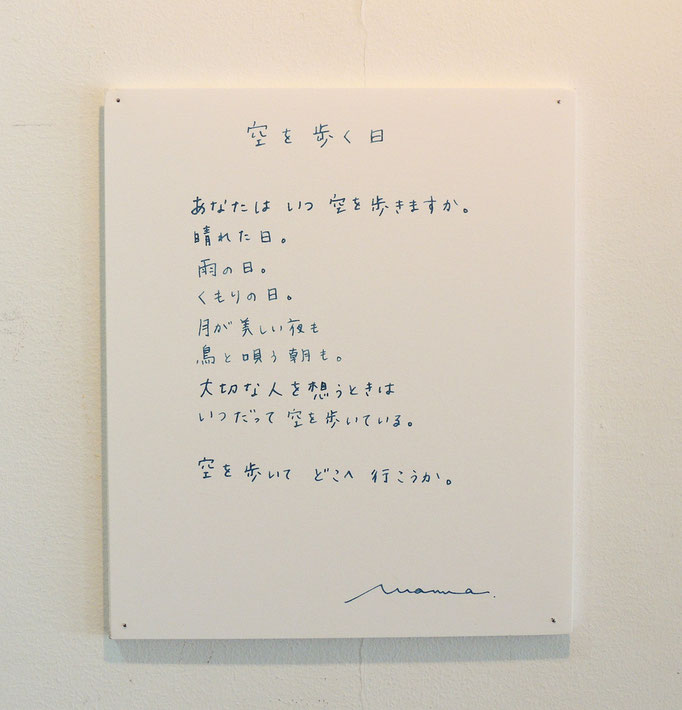 空を歩く日
あなたは いつ 空を歩きますか。
晴れた日。
雨の日。
くもりの日。
月が美しい夜も
鳥と唄う朝も。
大切な人を想うときは
いつだって 空を歩いている。
空を歩いて どこへ 行こうか。